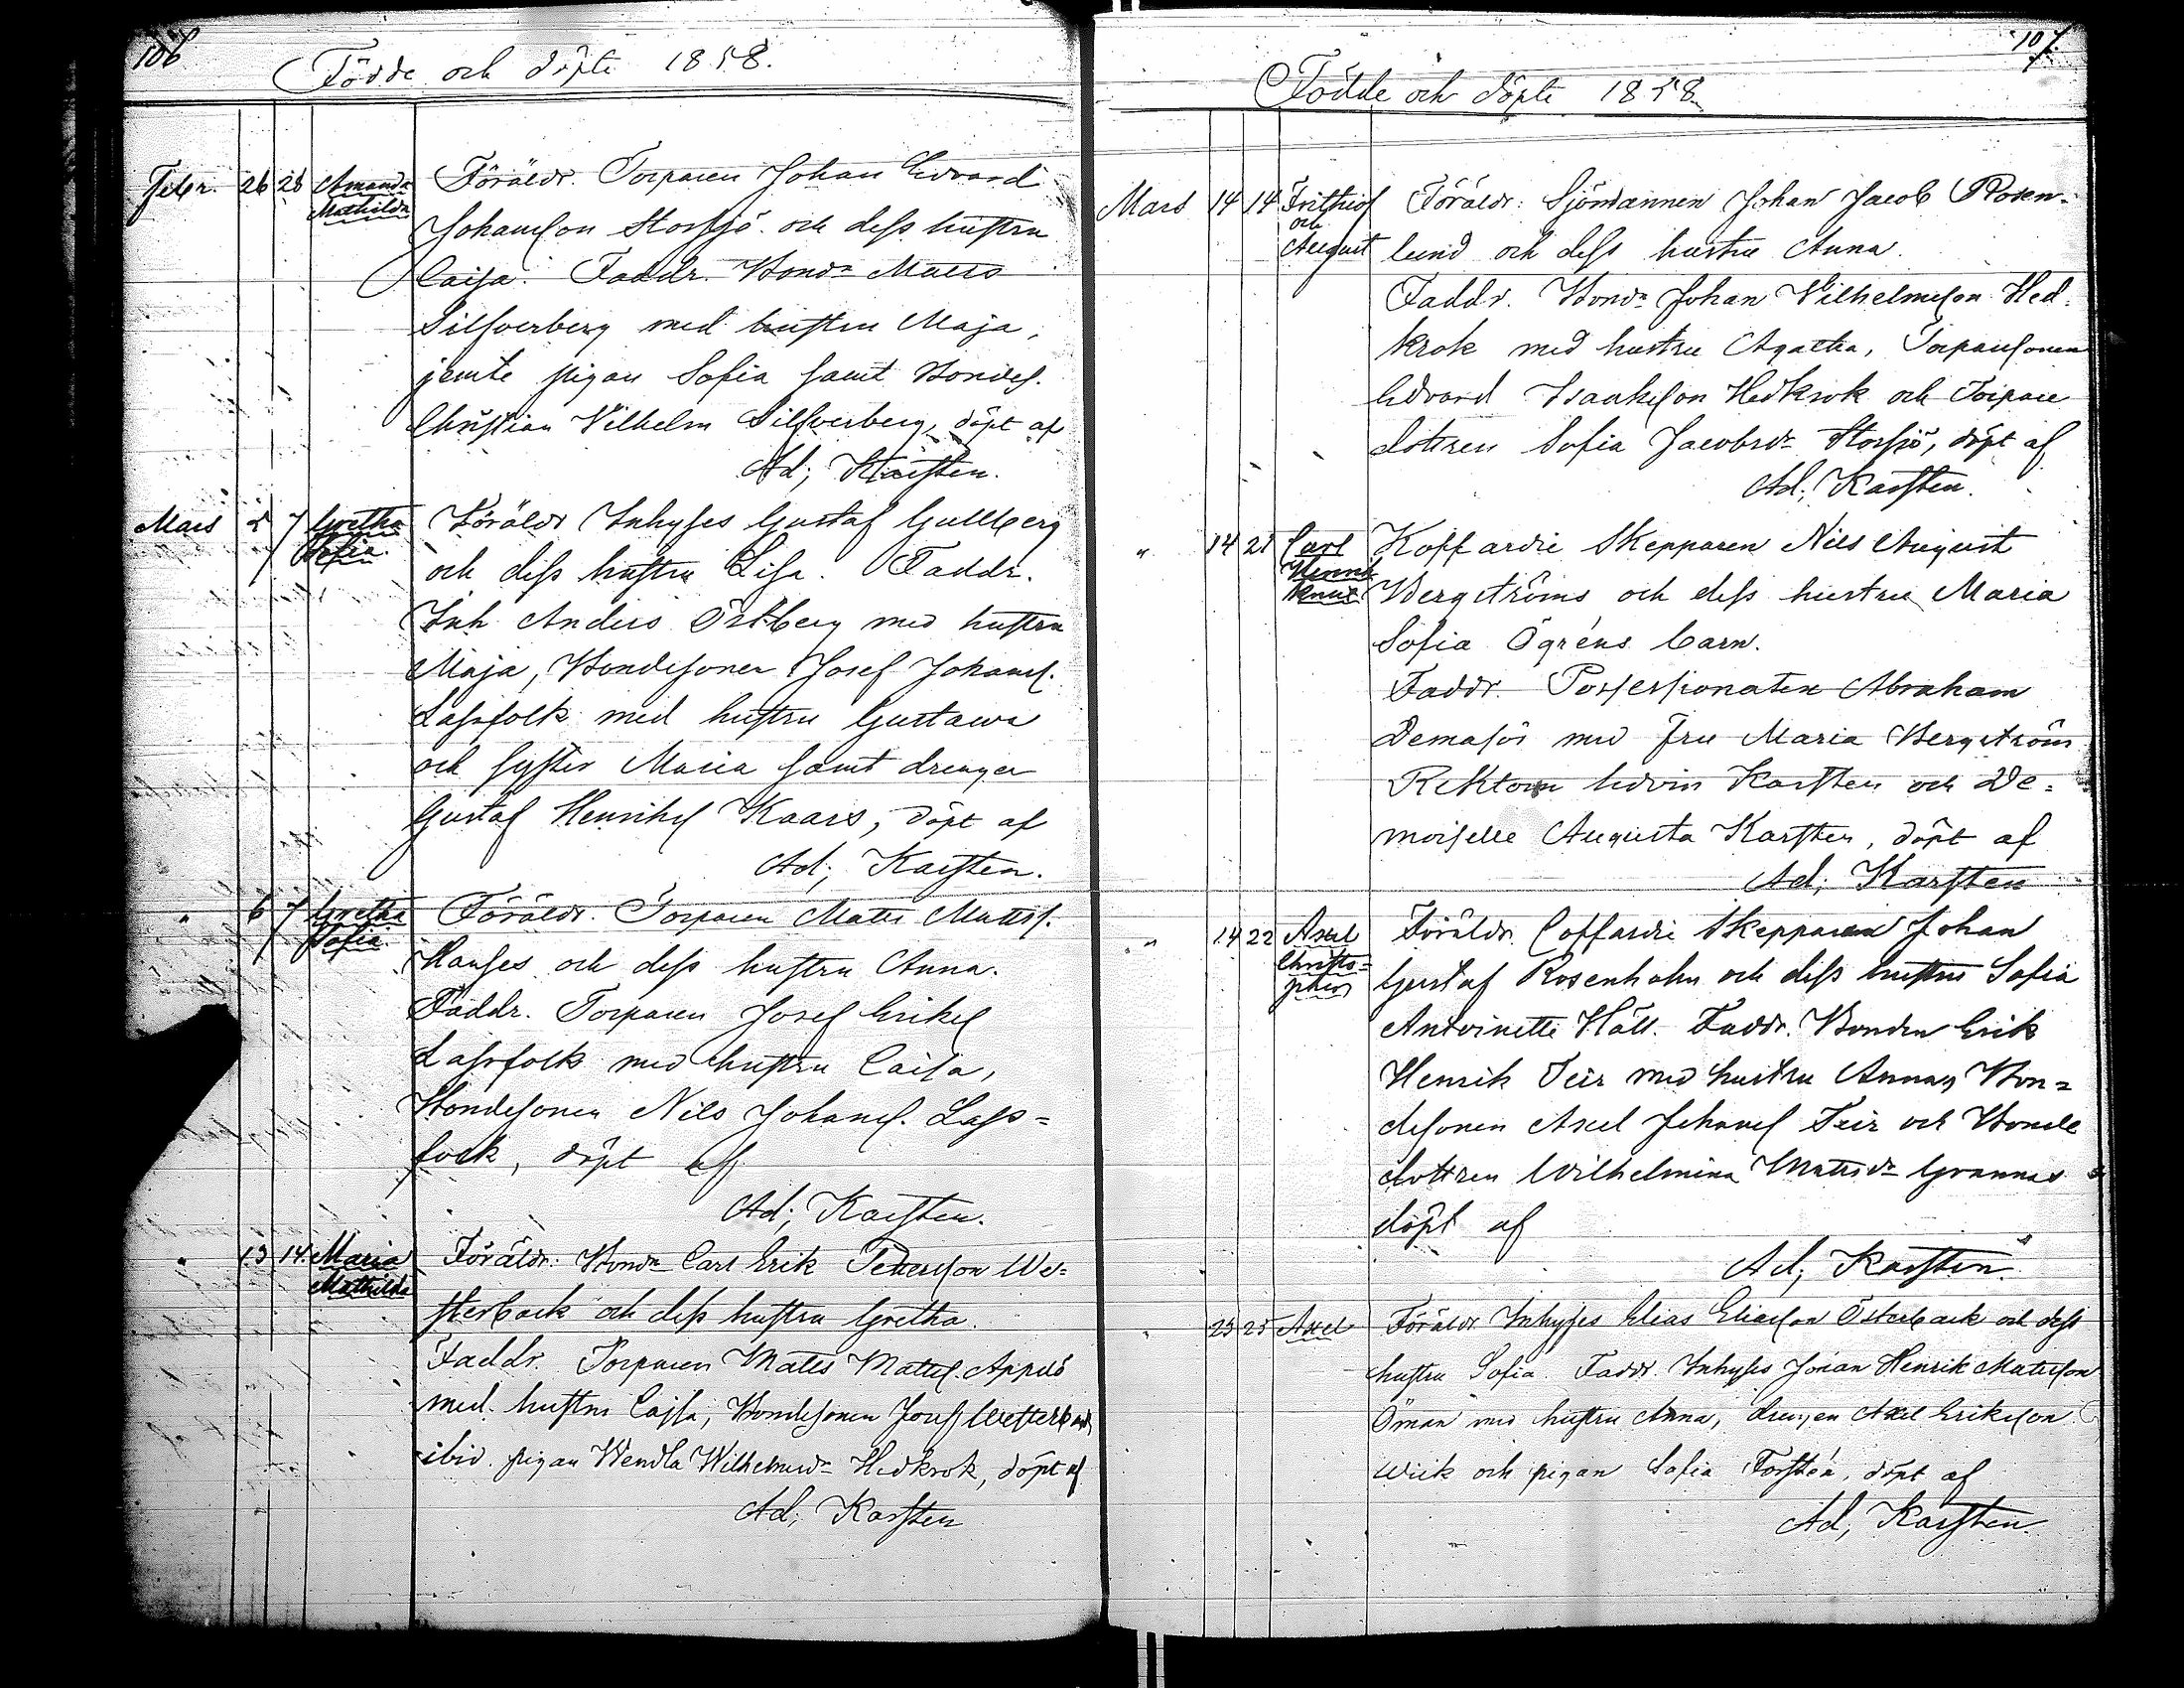 106
Födde och döpte 1858.
Febr. 26 28 Amanda Mathilda
Föräldr. Torparen Johan Edvard
Johansson Storsjö och dess hustru
Caisa. Faddr. Bondn Matts
Silfverberg med hustru Maja,
jemte pigan Sofia samt Bondes.
Christian Vilhelm Silfverberg, döpt af
Ad; Karsten.
Mars 5 7 Gretha Sofia.
Föräldr Inhyses Gustaf Gullberg
och dess hustru Lisa. Faddr.
Inh Anders Östberg med hustru
Maja, Bondesonen Josef Johans.
Lassfolk med hustru Gustava
och syster Maria samt drengen
Gustaf Henriks Kaars, döpt af
Ad; Karsten.
" 6 7 Gretha Sofia.
Föräldr. Torparen Matts Mattss.
Hanses och dess hustru Anna.
Faddr. Torparen Josef Eriks
Lassfolk med hustru Caisa,
Bondesonen Nils Johans. Lass=
folk, döpt af
Ad; Karsten.
" 13 14. Maria Mathilda
Föräldr: Bondn Carl Erik Petersson We=
sterback och dess hustru Gretha.
Faddr. Torparen Matts Matts. Applö
med hustru Cajsa, Bondesonen Josef Westerback
ibid. pigan Wendla Wilhelmsdr Hedkrok, döpt af
Ad; Karsten
107.
Födde och döpte 1858
Mars 14 14 Frithiof och August
Föräldr: Sjömannen Johan Jacob Rosen-
lund och dess hustru Anna.
Faddr. Bondn Johan Vilhelmsson Hed-
krok med hustru Agatha, Torparsonen
Edvard Isaaksson Hedkrok och Torpare
dottren Sofia Jacobsdr Storsjö, döpt af
Ad; Karsten.
" 14 21 Carl Henrik Knut
Koffardie Skepparen Nils August
Bergströms och dess hustru Maria
Sofia Ögréns barn.
Faddr. Possessionaten Abraham
med Fru Maria Bergström
Rektorn Edvin Karsten och De=
moiselle Augusta Karsten, döpt af
Ad; Karsten
" 14 22 Axel Christo= pher
Föräldr. Coffardie Skepparen Johan
Gustaf Rosenholm och dess hustru Sofia
Antoinette Häll. Faddr. Bonden Erik
Henrik Teir med hustru Anna, Bon=
desonen Axel Johans Teir och Bonde
dottren Wilhelmina Mattsdr Grannas
döpt af
Ad; Karsten.
" 23 25 Axel
Föräldr Inhyses Elias Eliasson Österback och dess
hustru Sofia. Faddr. Inhyses Johan Henrik Mattsson
Öman med hustru Anna, drengen Axel Eriksson
Wiik och pigan Sofia Forstén, döpt af
Ad; Karsten